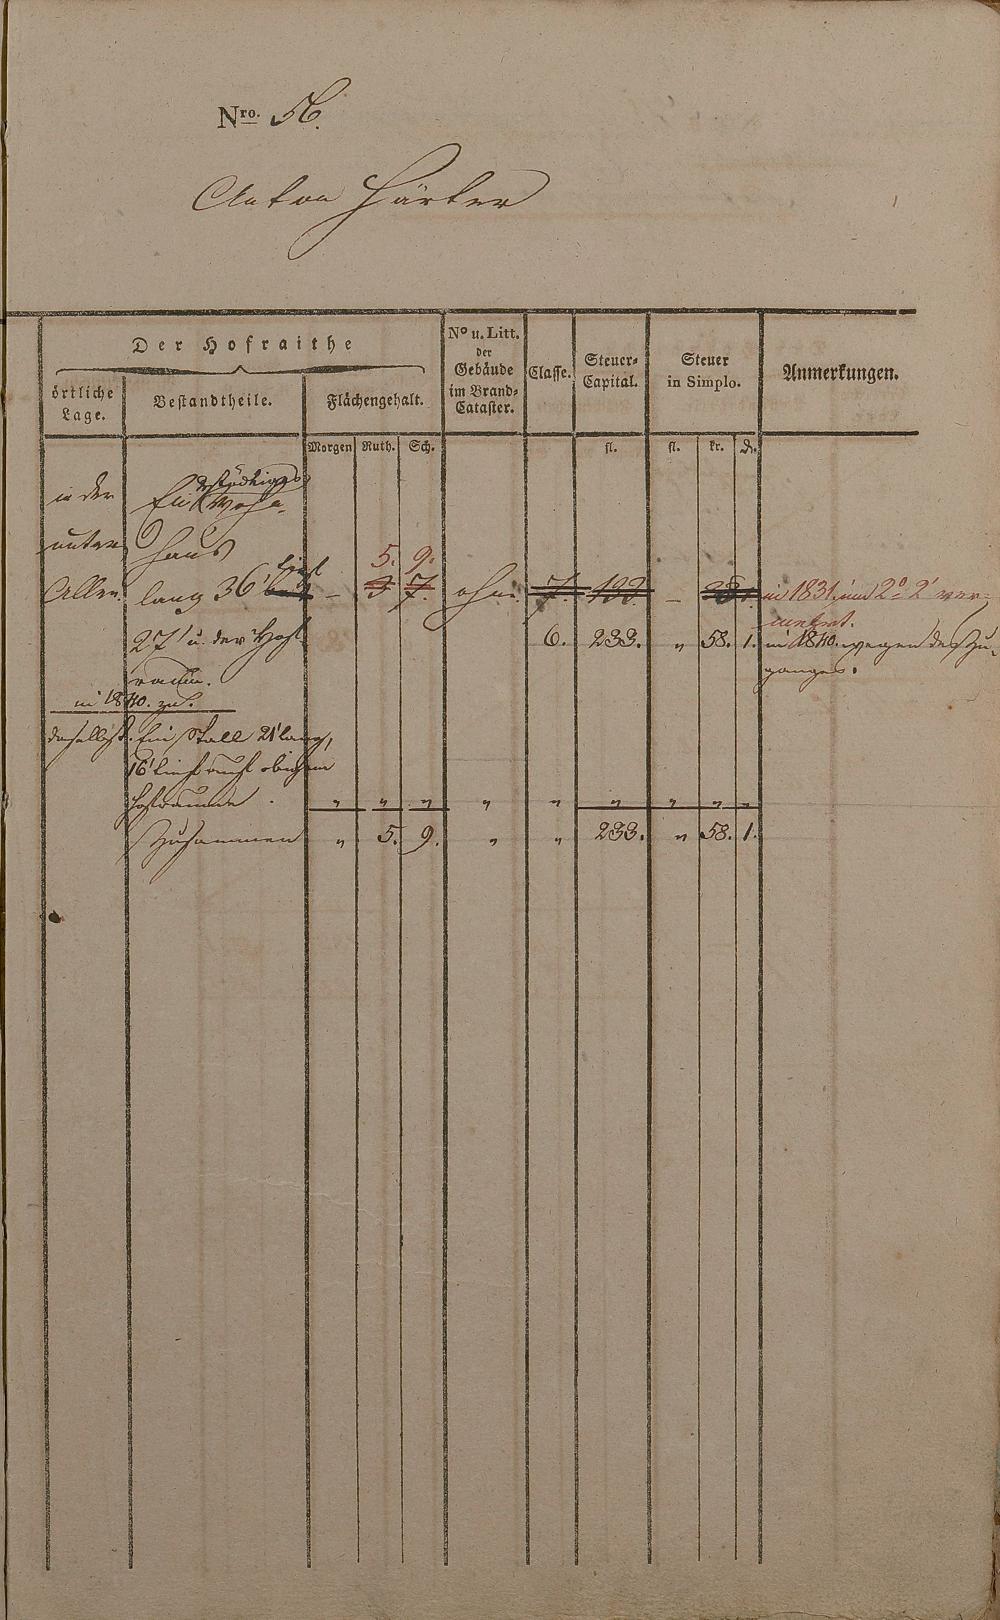 Nro. 56.
Anton Härter
Der Hofraithe
örtliche Lage.
Bestandtheile.
Flächengehalt.
No u. Litt. der Gebäude im Brand-Cataster.
Classe.
Steuer-Capital.
Steuer in Simplo.
Anmerkungen.
Morgen Ruth. Sch. fl. fl. kr. dr.
in der Ein 2stöckiges Wohn-
untern haus 5. 9.
Allee. lang 36' 3 7. ohne 7. 133 in 1831 um 2° 2' ver-
mehrt.
27' u. der Hof- 6. 233. " 58. 1. in 1840. wegen des Zu-
raum. ganges.
in 1840. zu.
daselbst. Ein Stall 21' lang,
16' auf obigem
Hofraume. " " " " " " " " "
Zusammen " 5. 9. " " 233. " 58. 1.